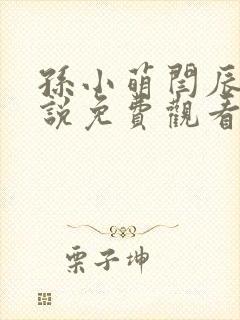 孫小萌閆辰
說免費觀看
栗子坤